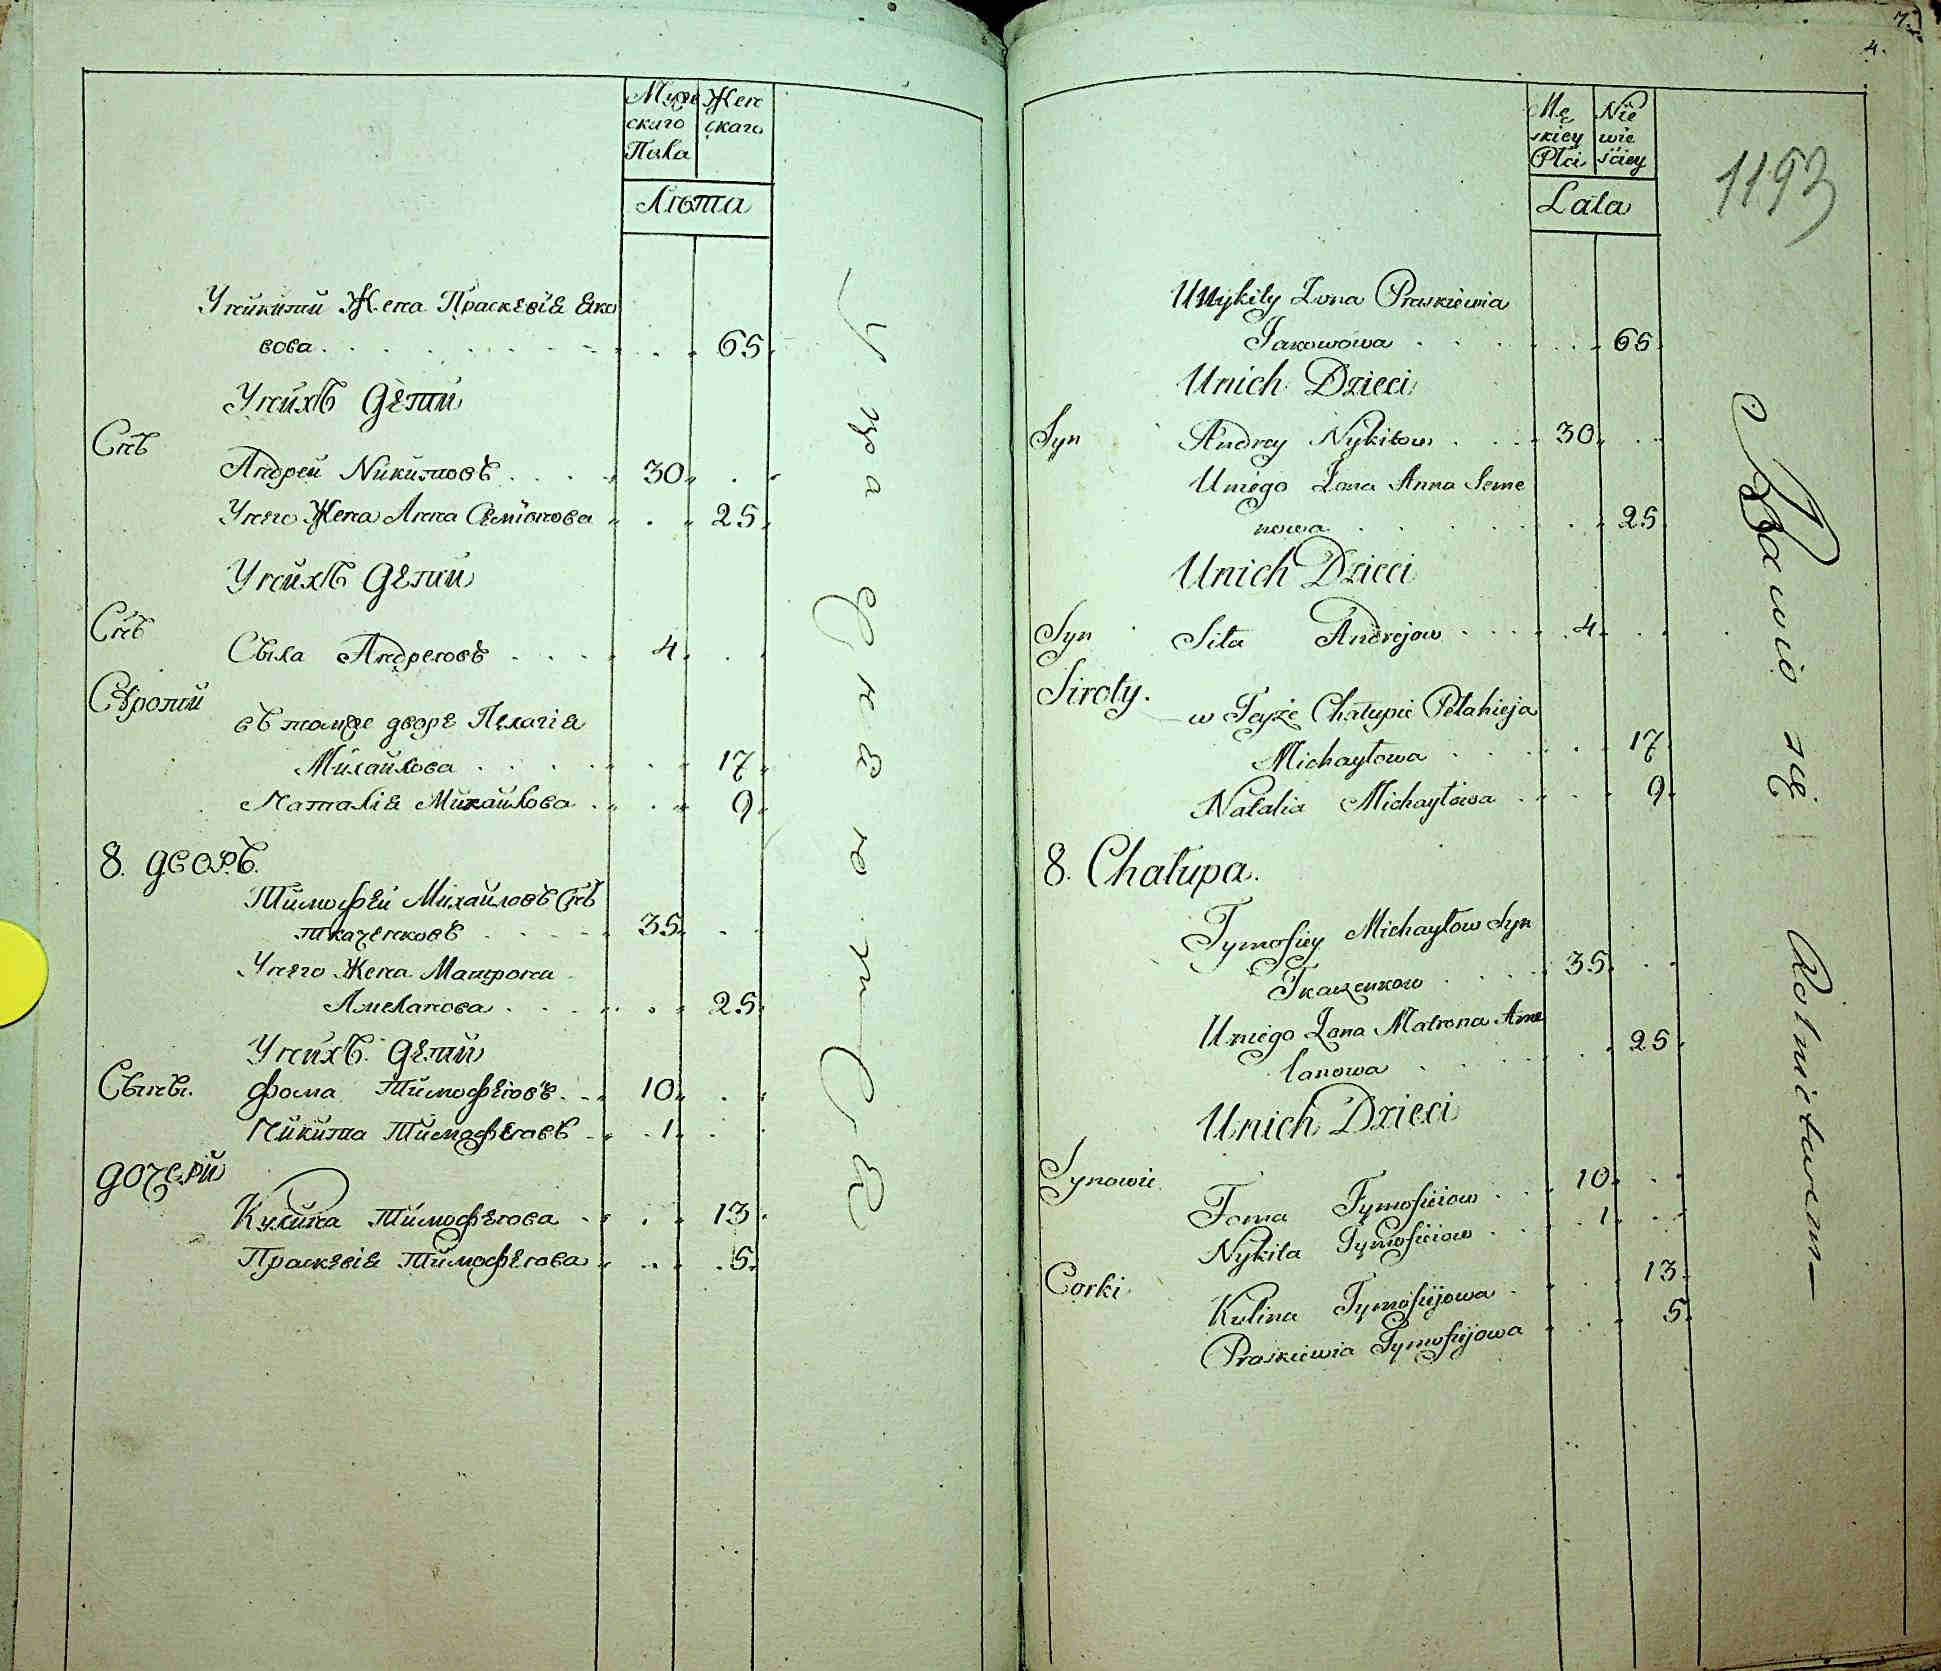 Муже Жен
скаго скаго
Пола
Лѣта
Унйкйтй Жена Праскевіа Яко
вова 65
Унйхъ Дѣтй
Снъ
Андрей Нйкйтовъ 30
Унего Жена Анна Семіонова 25
Унйхъ Дѣтй
Снъ
Сыла Андреевъ 4
Сѣротй
въ томже дворе Пелагіа
Мйхайлова 17
Наталіа Мйхайлова 9
8. дворъ.
Тймофей Мйхайловъ Снъ
ткаченковъ 35
Унего Жена Матрона
Амеланова 25
Унйхъ Дѣтй
Сыны. Фома Тймофеювъ 10
Нйкйта Тймофеювъ 1
дочерй
Кулйна Тймофеюва 13
Праскевіа Тймофеюва 5
Упра
жне
ют Са
7.
4.
1193
Mę Nie
skiey wie
Płci ściey
Lata
U Nykity Żona Praskiewia
Jakowowa 65
Unich Dzieci
Syn Andrey Nykitow 30
Uniego Żona Anna Seme
nowa 25
Unich Dzieci
Syn Siła Andrejow 4
Siroty.
w Teyże Chałupie Pełahieja
Michayłowa 17
Natalia Michayłowa 9
8. Chałupa.
Tymofiey Michayłow Syn
Tkaczenkow 35
Uniego Żona Matrona Ame
lanowa 25
Unich Dzieci
Synowie
Foma Tymofieiow 10
Nykita Tymofieiow 1
Corki
Kulina Tymofiejowa 13
Praskiewia Tymofiejowa 5
Bawio się Rolnictwem